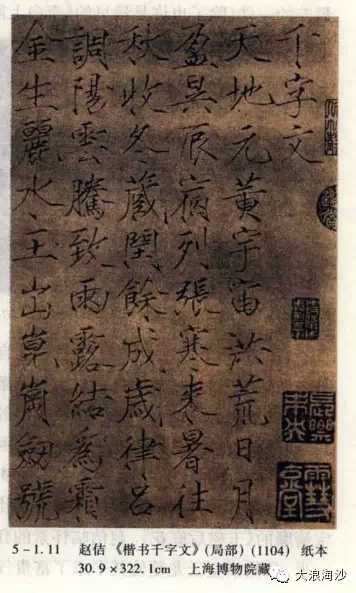 千字文
天地元黃宇宙洪荒日月
盈昃辰宿列張寒来暑往
秋收冬蔵閏餘成歳律吕
調陽雲騰致雨露結為霜
金生麗水玉出崑崗劔號
5-1.11 赵佶《楷书千字文》(局部)(1104) 纸本
30.9×322.1cm 上海博物院藏
大浪淘沙